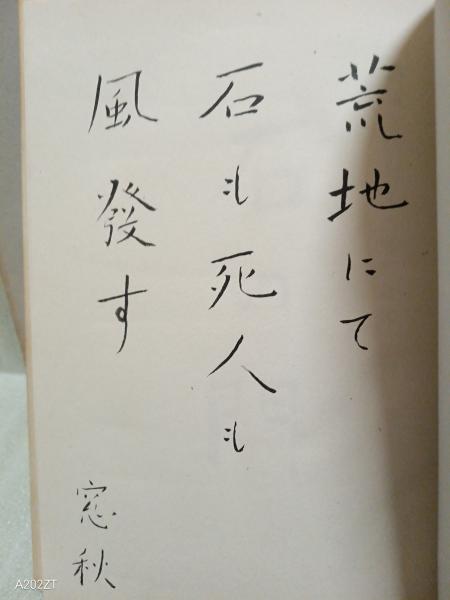 荒地にて
石も死人も
風発す
窓秋
A202ZT